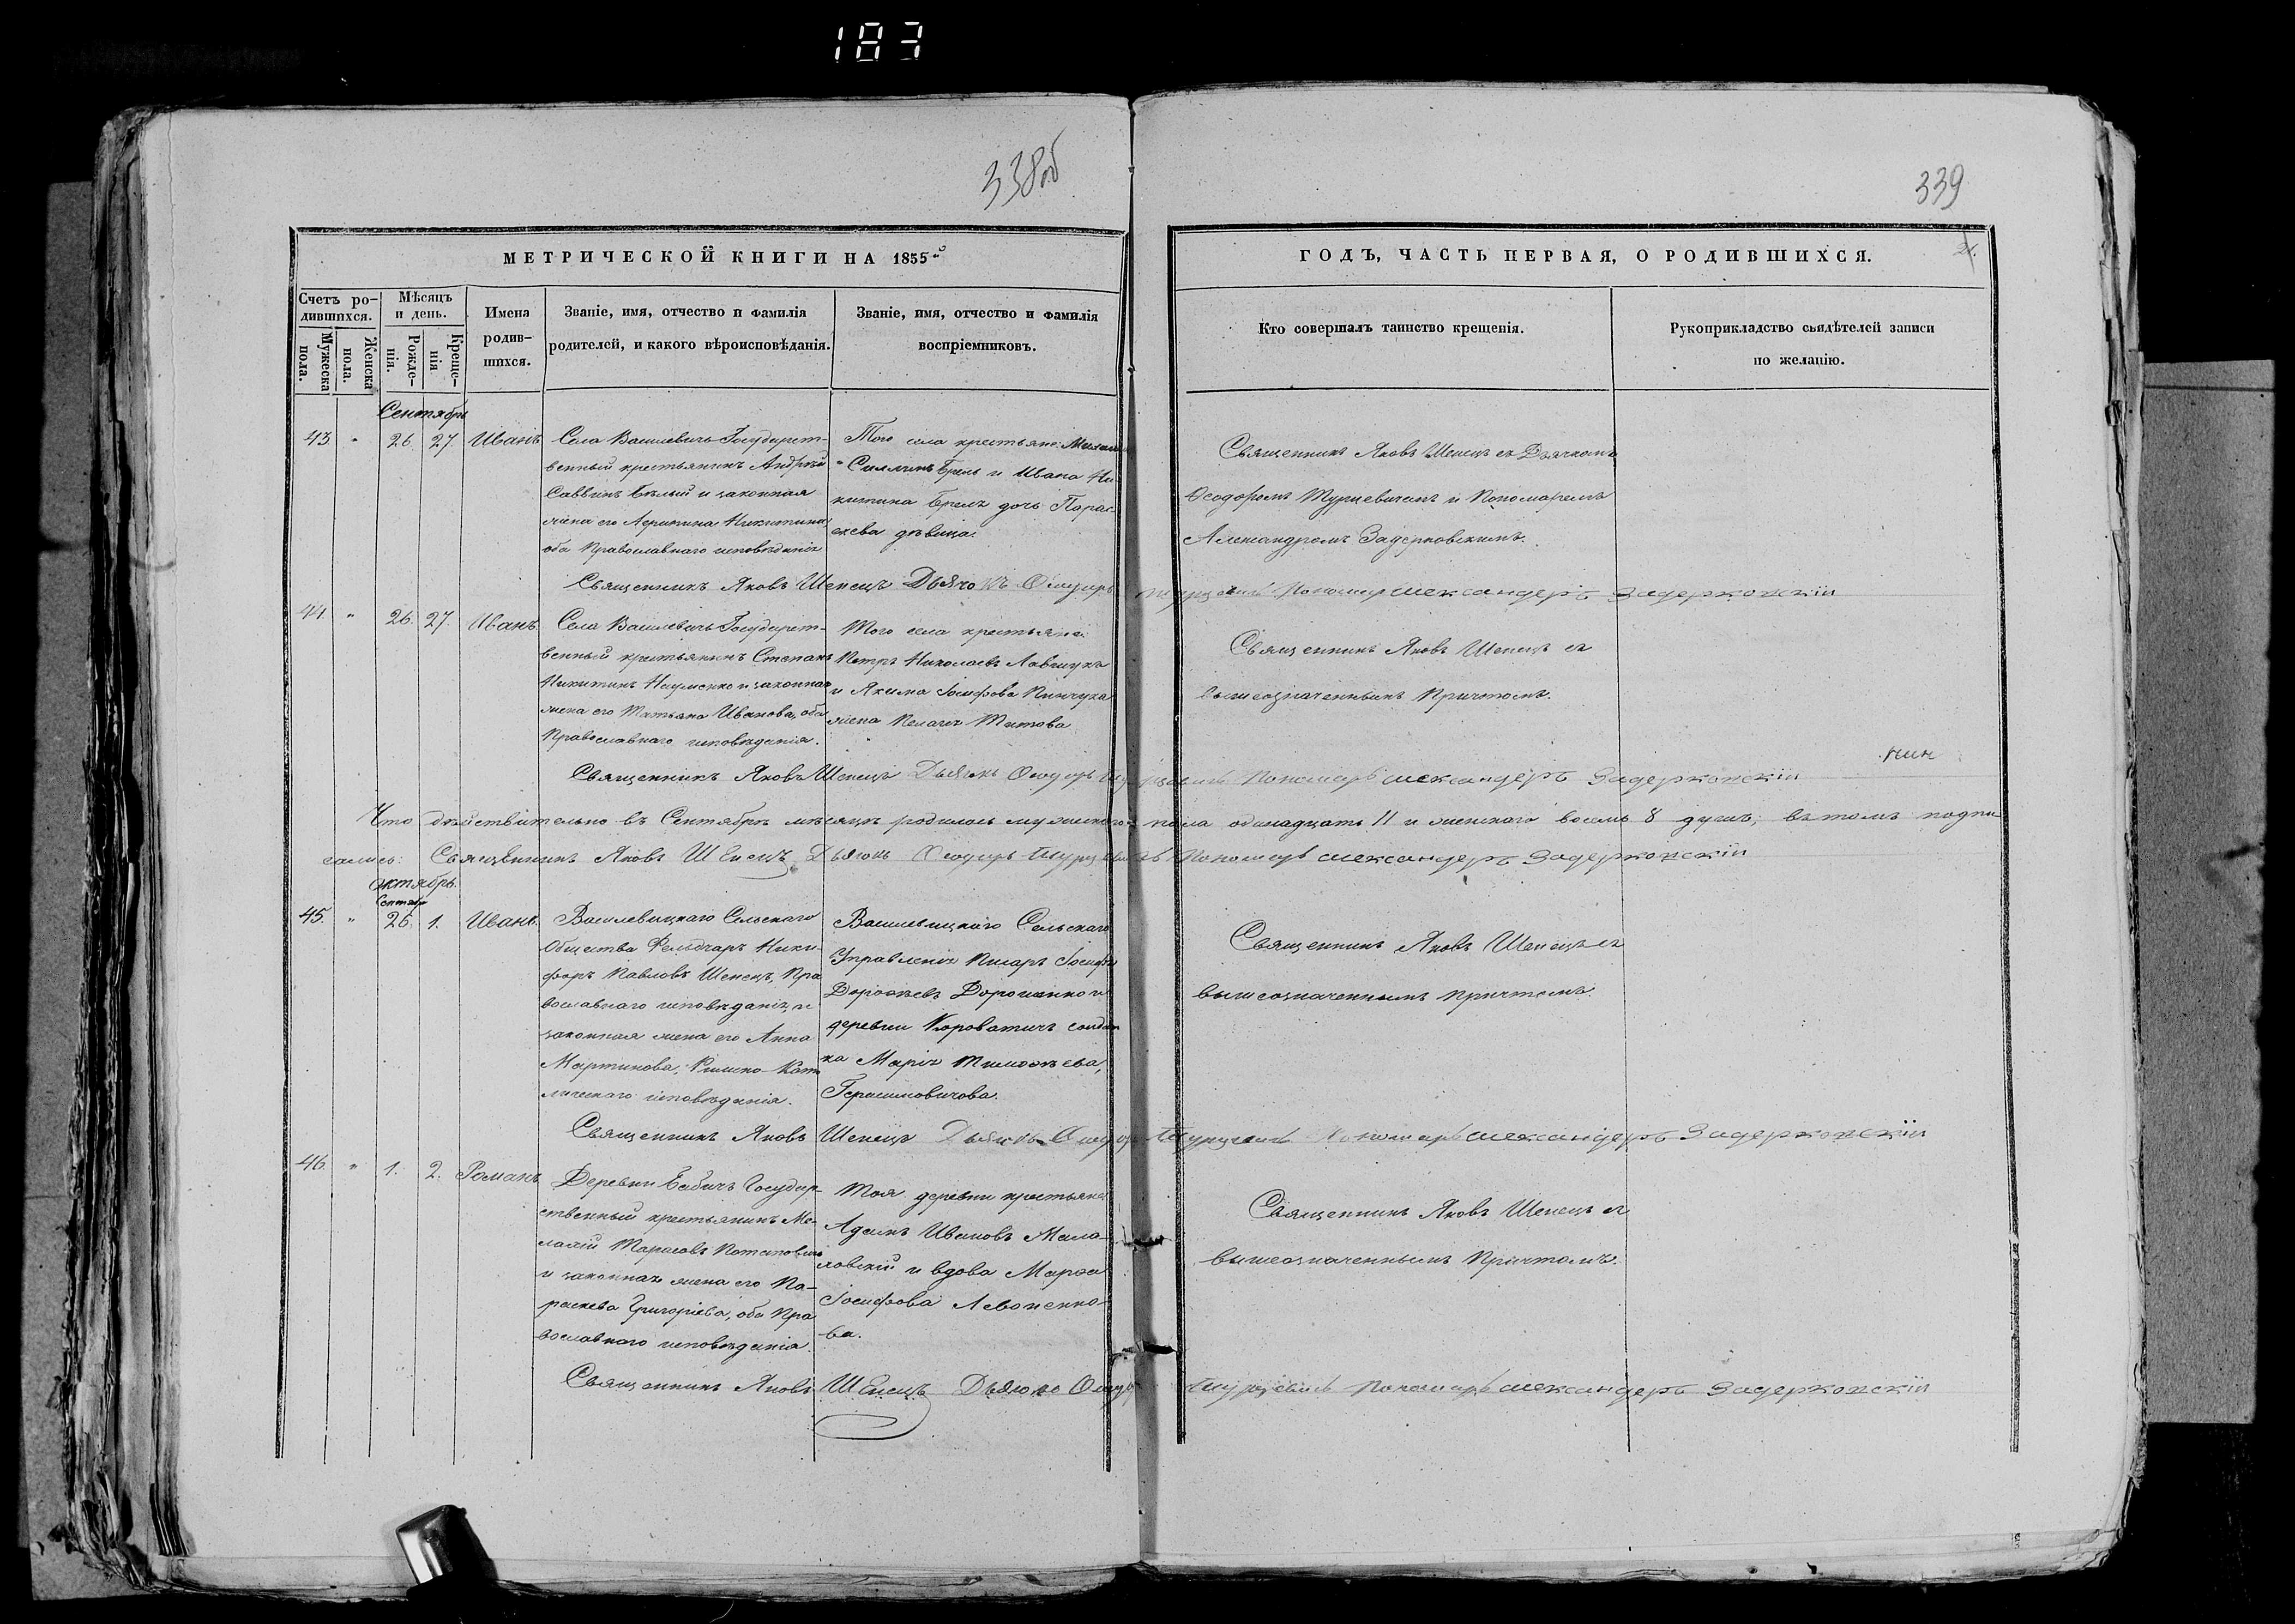 183
338об
339
МЕТРИЧЕСКОЙ КНИГИ НА 1855й
ГОДЪ, ЧАСТЬ ПЕРВАЯ, О РОДИВШИХСЯ.
Счетъ ро-
дившихся.
Мужеска
пола.
Женска
пола.
Мѣсяцъ
и день.
Рожде-
нія.
Креще-
нія
Имена
родив-
шихся.
Званіе, имя, отчество и фамилія
родителей, и какого вѣроисповѣданія.
Званіе, имя, отчество и фамилія
воспріемниковъ.
Кто совершалъ таинство крещенія.
Рукоприкладство свидѣтелей записи
по желанію.
Сентябрь
43 " 26. 27. Иванъ
Села Василевичъ Государст-
венный крестьянинъ Андрей
Саввинъ Бѣлый и законная
жена его Никитина
оба Православнаго исповѣданія
Того села крестьяне:
и Ивана Ни-
китина дочь Парас-
кева дѣвица.
Священникъ Яковъ Шепецъ съ Дьячкомъ
Ѳеодоромъ Турцевичемъ и Пономаремъ
Александромъ Задерковскимъ.
Священникъ Яковъ Шепецъ Дьячокъ Ѳеодоръ Турцевичъ Пономарь Александеръ Задерковскій
44. " 26. 27. Иванъ
Села Василевичъ Государст-
венный крестьянинъ Степанъ
Никитинъ Науменко и законная
жена его Татьяна Иванова, оба
Православнаго исповѣданія.
Того села крестьяне
Петръ Николаевъ Лавшукъ
и Якима Іосифова Пинчука
жена Пелагія Титова
Священникъ Яковъ Шепецъ съ
вышеозначеннымъ Причтомъ.
Священникъ Яковъ Шепецъ Дьячокъ Ѳеодоръ Турцевичъ Пономарь Александеръ Задерковскій
Что дѣйствительно въ Сентябрѣ мѣсяцѣ родилось мужескаго пола одинадцать 11 и женскаго восемь 8 душъ, въ томъ подпи
сались: Священникъ Яковъ Шепецъ Дьячокъ Ѳеодоръ Турцевичъ Пономарь Александеръ Задерковскій
Октябрь.
Сентябр
45. " 26. 1. Иванъ.
Василевицкаго Сельскаго
Общества Фельдчаръ Ники-
форъ Павловъ Шепецъ, Пра
вославнаго исповѣданія, и
законная жена его Анна
Мартинова, Римско-Като
лическаго исповѣданія.
Василевицкаго Сельскаго
Управленія Писарь Іосифъ
Дороѳеевъ Дорошенко и
деревни Короватичъ солдат
ка Марія Тимоѳеева,
Герасимовичова.
Священникъ Яковъ Шепецъ съ
вышеозначеннымъ причтомъ.
Священникъ Яковъ Шепецъ Дьячокъ Ѳеодоръ Турцевичъ Пономарь Александеръ Задерковскій
46. " 1. 2. Романъ
Деревни Бабичъ Государ-
ственный крестьянинъ Ме-
лаѳій Тарасовъ Потаповичъ
и законная жена его Па-
раскева Григоріева, оба Пра
вославнаго исповѣданія.
Тоя деревни крестьяне
Адамъ Ивановъ Мала-
ховскій и вдова Марѳа
Іосифова Левоненко-
ва.
Священникъ Яковъ Шепецъ съ
вышеозначеннымъ Причтомъ.
Священникъ Яковъ Шепецъ Дьячокъ Ѳеодоръ Турцевичъ Пономарь Александеръ Задерковскій